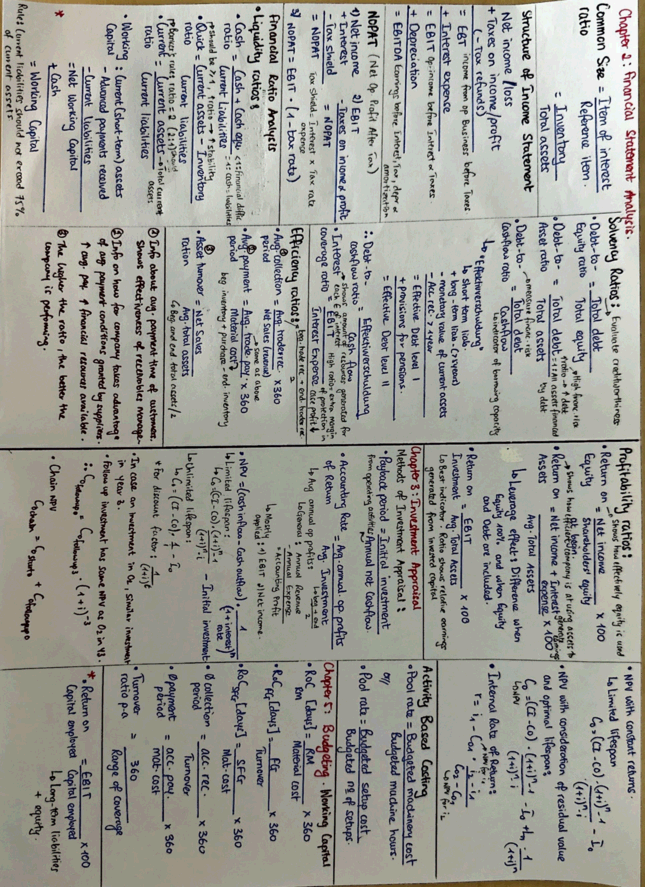 Chapter 2: Financial Statement Analysis.
Common Size = Item of interest
ratio Reference item.
= Inventory
Total assets
Structure of Income Statement
Net income /loss
+ Taxes on income/profit
(- Tax refunds)
= EBT income from op Business before Taxes
+ Interest expense
= EBIT Op. income before Interest & Taxes
+ Depreciation
= EBITDA (earnings before Interest, Tax, depr &
amortization
NOPAT (Net Op Profit After Tax)
1) Net income 2) EBIT
+ Interest - Taxes on income & profit
- Tax shield = NOPAT
= NOPAT Tax shield = Interest x Tax rate
expense
3) NOPAT = EBIT · (1 - tax rate)
Financial Ratio Analysis
• Liquidity ratios:
• Cash = Cash + Cash equ.
ratio Current liabilities
• Quick = Current assets - Inventory
ratio Current liabilities
• Current = Current assets → Total current assets
ratio Current liabilities
• Working : Current (short-term) assets
Capital - Advanced payments received
- Current liabilities
= Net Working Capital
+ Cash
= Working Capital
* Rule: Current liabilities should not exceed 75%
of current assets
Solvency Ratios: → Evaluate creditworthiness
• Debt-to- = Total debt
Equity ratio Total equity
• Debt-to- = Total debt
Asset ratio Total assets
• Debt-to- = Total debt
Cashflow ratio Cashflow
↳ "Effektivverschuldung"
↳ short term liab.
+ long-term liab. (>1 year)
- monetary value of current assets
- Acc. rec. > 1 year
= Effective Debt level I
+ provisions for pensions.
= Effective Debt level II
∴ Debt-to- = Effektivverschuldung
cashflow ratio Cash flow
• Interest = EBIT
coverage ratio Interest Expense
Efficiency ratios:
• Avg collection = Avg. trade rec. x 360
period Net sales (revenue)
• Avg payment = Avg. trade pay. x 360
period Material cost
beg inventory + purchase - end inventory
• Asset turnover = Net Sales
ration Avg. total assets
↳ Beg and end total assets/2
① Info about avg. payment time of customers.
Shows effectiveness of receivables manage-
② Info on how far company takes advantage
of avg payment conditions granted by suppliers.
↑ avg pay. ↑ financial resources available.
③ The higher the ratio, the better the
company is performing.
Profitability ratios:
• Return on = Net income x 100
Equity Shareholders' equity
• Return on = Net income + Interest expense x 100
Assets Avg. Total Assets
↳ Leverage effect: Difference when
Equity 100%, and when Equity
and Debt are included.
• Return on = EBIT x 100
Investment Avg. Total Assets
↳ Best indicator: Ratio shows relative earnings
generated from invested capital.
Chapter 3: Investment Appraisal
Methods of Investment Appraisal:
• Payback period = Initial investment
from operating activities Annual net Cashflow.
• Accounting Rate = Avg. annual op profits
of Return Avg. Investment
↳ Avg annual op profits:
= Annual Revenue
- Annual Expense
= Accounting Profit
↳ Mostly
applied: 1) EBIT 2) Net income.
• NPV = (cash inflow - Cash outflow) · 1
(1 + interest rate)
↳ Limited lifespan:
↳ C₀ = (CI - CO) · (1+i)ⁿ - 1 - Initial investment
(1+i)ⁿ · i
↳ Unlimited lifespan:
↳ C₀ = (CI - CO) · 1/i - I₀
* For discount factor: 1
(1+i)ᵗ
• In case an investment in 0₂, similar investment
in year 3.
• Follow up investment has same NPV as P₂ in Y3.
• Chain NPV
• NPV with constant returns.
↳ Limited lifespan
C₀ = (CI - CO) · (1+i)ⁿ - 1 - I₀
(1+i)ⁿ · i
• NPV with consideration of residual value
and optimal lifespan:
C₀ = (CI - CO) · (1+i)ⁿ - 1 - I₀ + Lₙ · 1
(1+i)ⁿ · i (1+i)ⁿ
• Internal Rate of Return:
r = i₁ - C₀₁ · i₂ - i₁
C₀₂ - C₀₁
Activity Based Costing
• Pool rate = Budgeted machinery cost
Budgeted machine hours.
or/
• Pool rate = Budgeted setup cost
Budgeted nº of setups
Chapter 5: Budgeting - Working Capital
• RoC RM [days] = RM x 360
Material cost
• RoC FG [days] = FG x 360
Turnover
• RoC SFG [days] = SFG x 360
Mat. cost
• Ø collection = acc. rec. x 360
period Turnover
• Ø payment = acc. pay. x 360
period mat. cost
• Turnover = 360
ratio p.a Range of coverage
* • Return on = EBIT x 100
Capital employed Capital employed
↳ Long-term liabilities
+ equity.